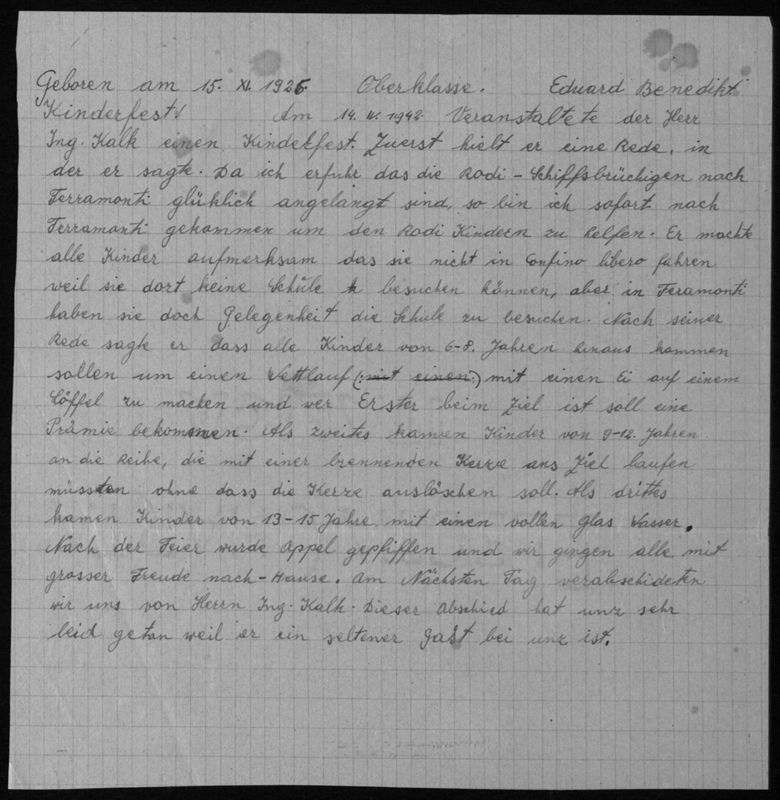 Geboren am 15. XI. 1926. Oberklasse. Eduard Benedikt
Kinderfest! Am 14. V. 1942. Veranstaltete der Herr
Ing. Kalk einen Kinderfest. Zuerst hielt er eine Rede, in
der er sagte. Da ich erfuhr das die Rodi - Schiffsbrüchigen nach
Ferramonti glüklich angelangt sind, so bin ich sofort nach
Ferramonti gekommen um den Rodi Kindern zu helfen. Er machte
alle Kinder aufmerksam das sie nicht in Confino libero fahren
weil sie dort keine Schule besuchen können, aber in Feramonti
haben sie doch Gelegenheit die Schule zu besuchen. Nach seiner
Rede sagte er dass alle Kinder von 6-8. Jahren hinaus kommen
sollen um einen Wettlauf (mit einen) mit einen Ei auf einem
Löffel zu machen und wer Erster beim Ziel ist soll eine
Prämie bekommen. Als zweites kamen Kinder von 9-12. Jahren
an die Reihe, die mit einer brennenden Kerze ans Ziel laufen
müssten ohne dass die Kerze auslöschen soll. Als drittes
kamen Kinder von 13-15 Jahre mit einen vollen Glas Wasser.
Nach der Feier wurde Appel gepfiffen und wir gingen alle mit
grosser Freude nach-Hause. Am Nächsten Tag verabschideten
wir uns von Herrn Ing. Kalk. Dieser Abschied hat unz sehr
leid getan weil er ein seltener Gast bei unz ist.